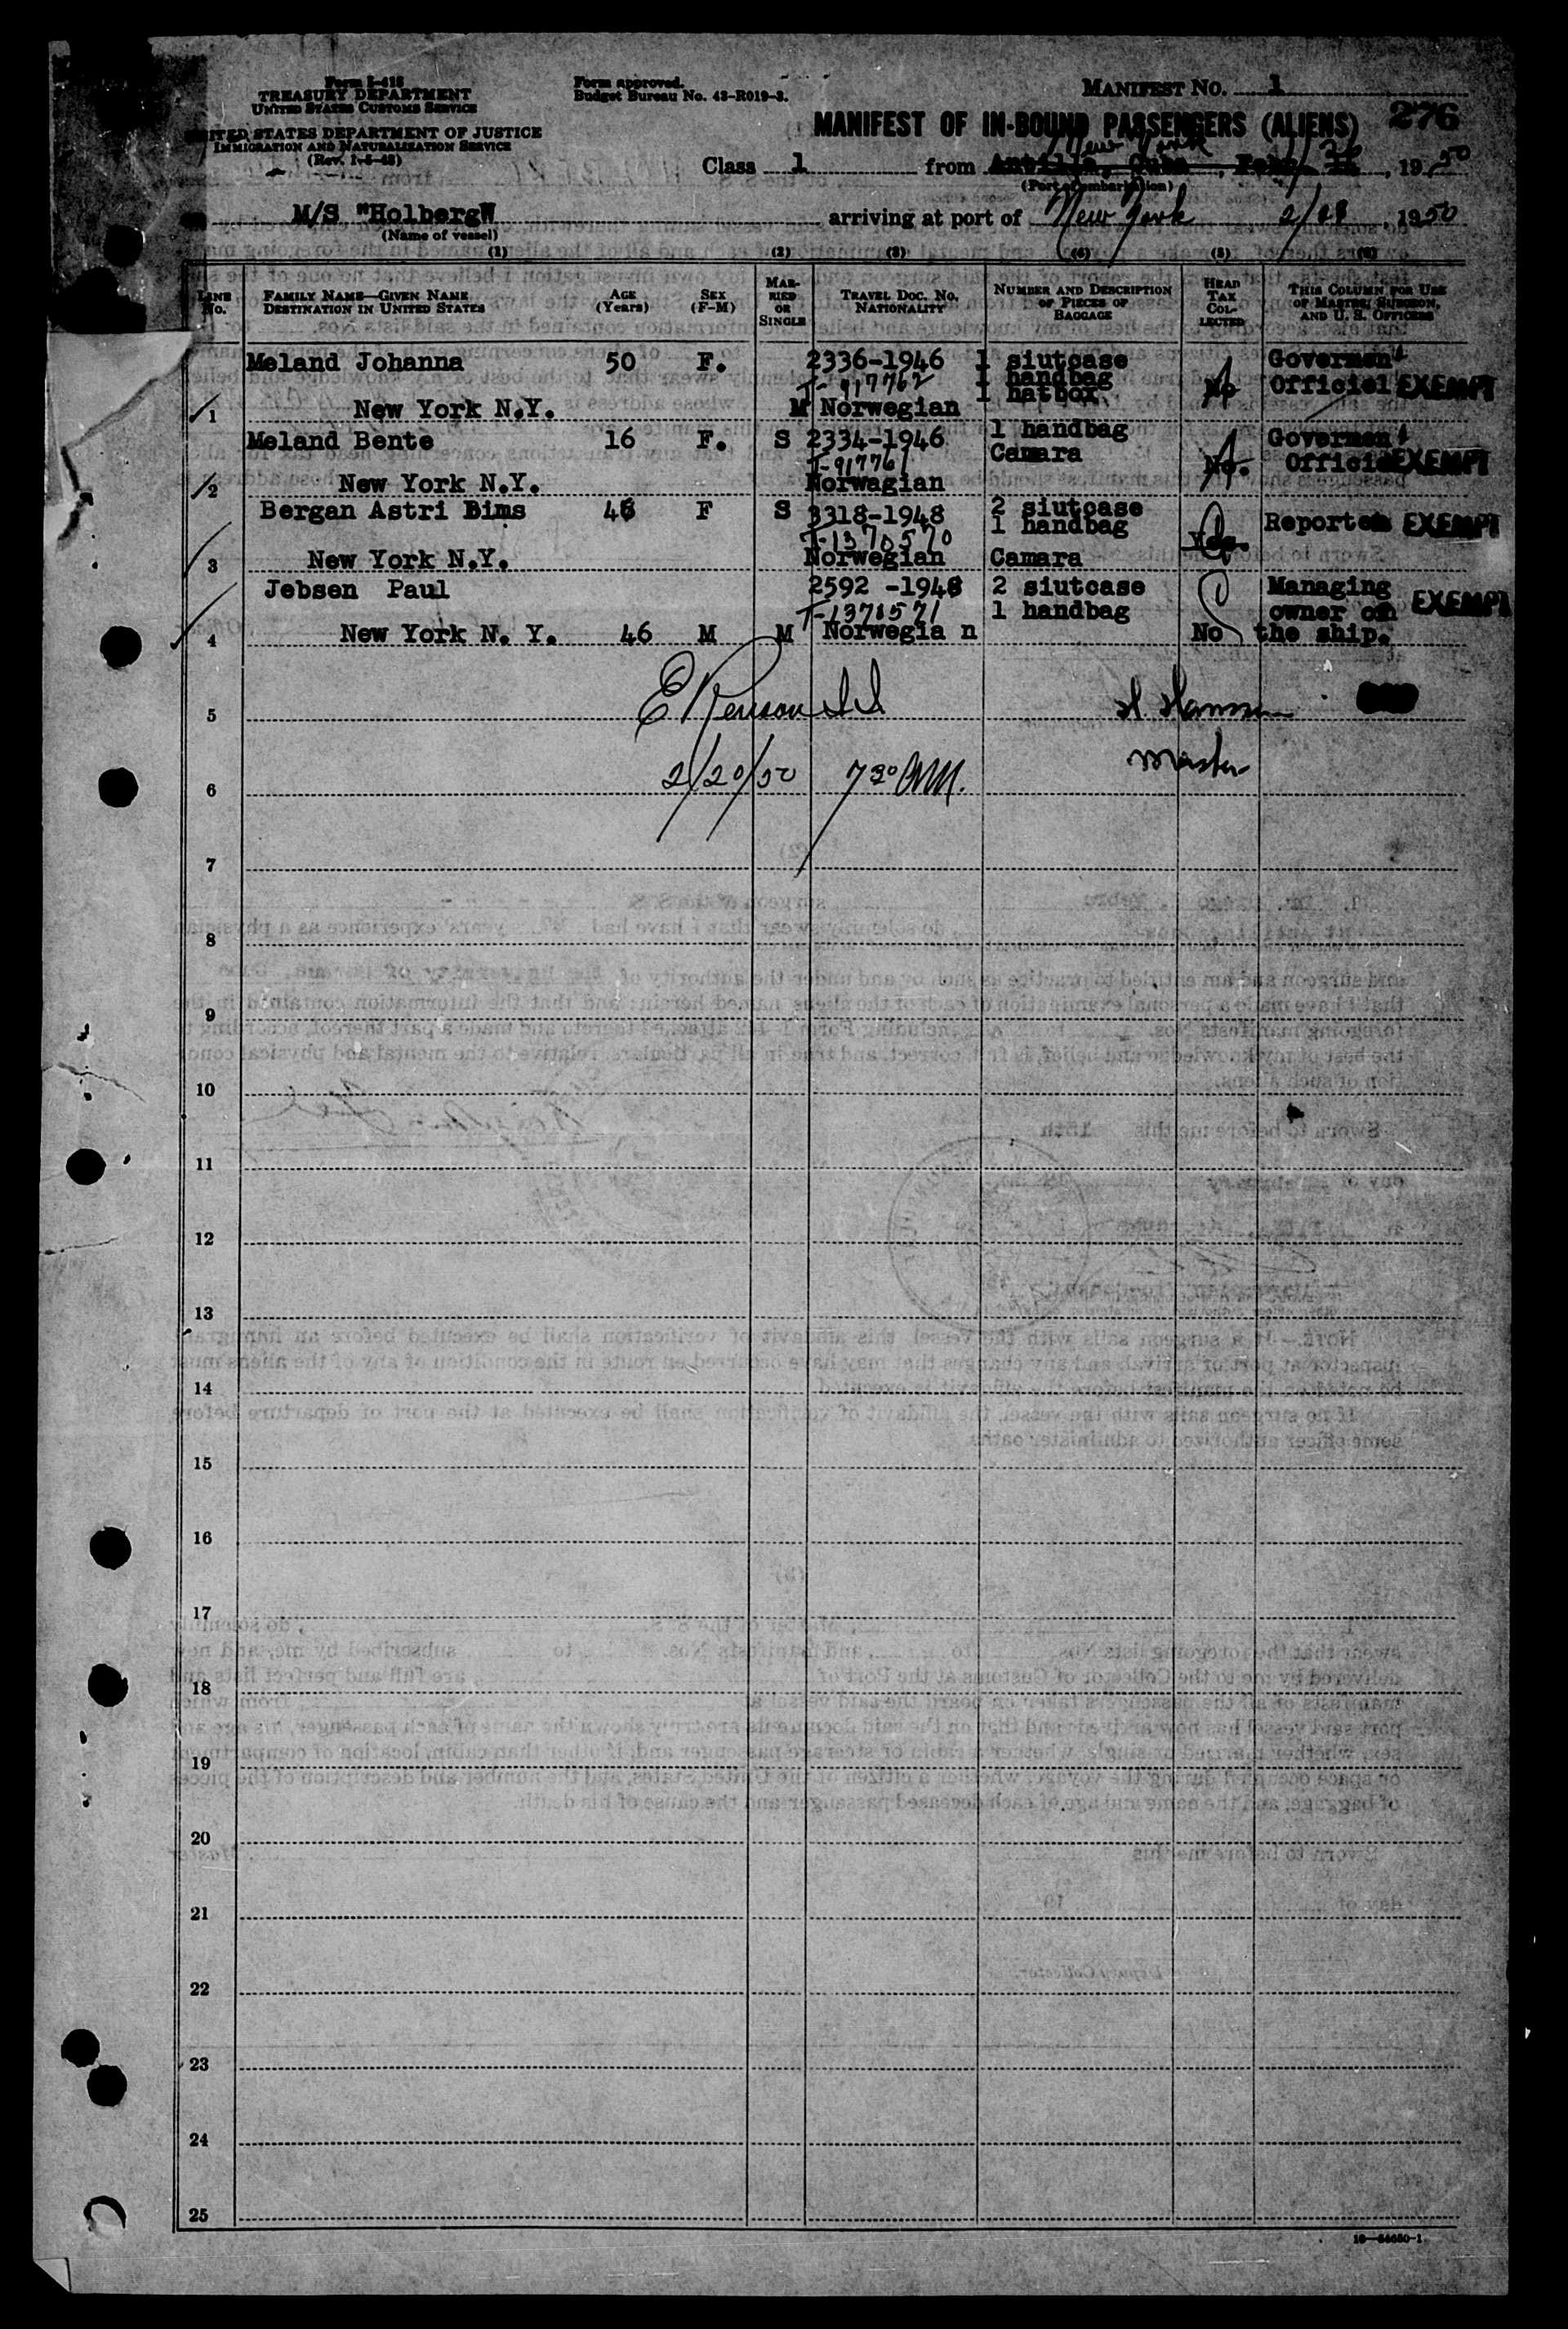 Form I-415
TREASURY DEPARTMENT
UNITED STATES CUSTOMS SERVICE
UNITED STATES DEPARTMENT OF JUSTICE
IMMIGRATION AND NATURALIZATION SERVICE
Form approved.
Budget Bureau No. 43-R019-3.
MANIFEST NO. 1
MANIFEST OF IN-BOUND PASSENGERS (ALIENS) 276
New York
Class 1 from Antilla, Cuba, 1950
(Port of embarkation)
M/S "HolbergW arriving at port of New York 1950
(Name of vessel)
(1) (2) (3) (4) (5) (6)
LINE NO.
FAMILY NAME—GIVEN NAME
DESTINATION IN UNITED STATES
AGE (Years)
SEX (F-M)
MARRIED OR SINGLE
TRAVEL DOC. NO.
NATIONALITY
NUMBER AND DESCRIPTION OF PIECES OF BAGGAGE
HEAD TAX COLLECTED
THIS COLUMN FOR USE OF MASTER, SURGEON, AND U. S. OFFICERS
Meland Johanna 50 F. 2336-1946 1 siutcase Goverment
T-917762 1 handbag No Officiel EXEMPT
1 hatbox
1 New York N.Y. M Norwegian
Meland Bente 16 F. S 2334-1946 1 handbag Goverment
T-917761 Camara No. Officiel EXEMPT
2 New York N.Y. Norwagian
Bergan Astri Bims F S 3318-1948 2 siutcase Reporter EXEMPT
T-1370570 1 handbag
3 New York N.Y. Norwegian Camara
Jebsen Paul 2592 -1948 2 siutcase Managing EXEMPT
T-1370571 1 handbag owner on
4 New York N. Y. 46 M M Norwegia n No the ship.
5
Master
6 2/20/50 7 30 AM.
7
8
9
10
11
12
13
14
15
16
17
18
19
20
21
22
23
24
25